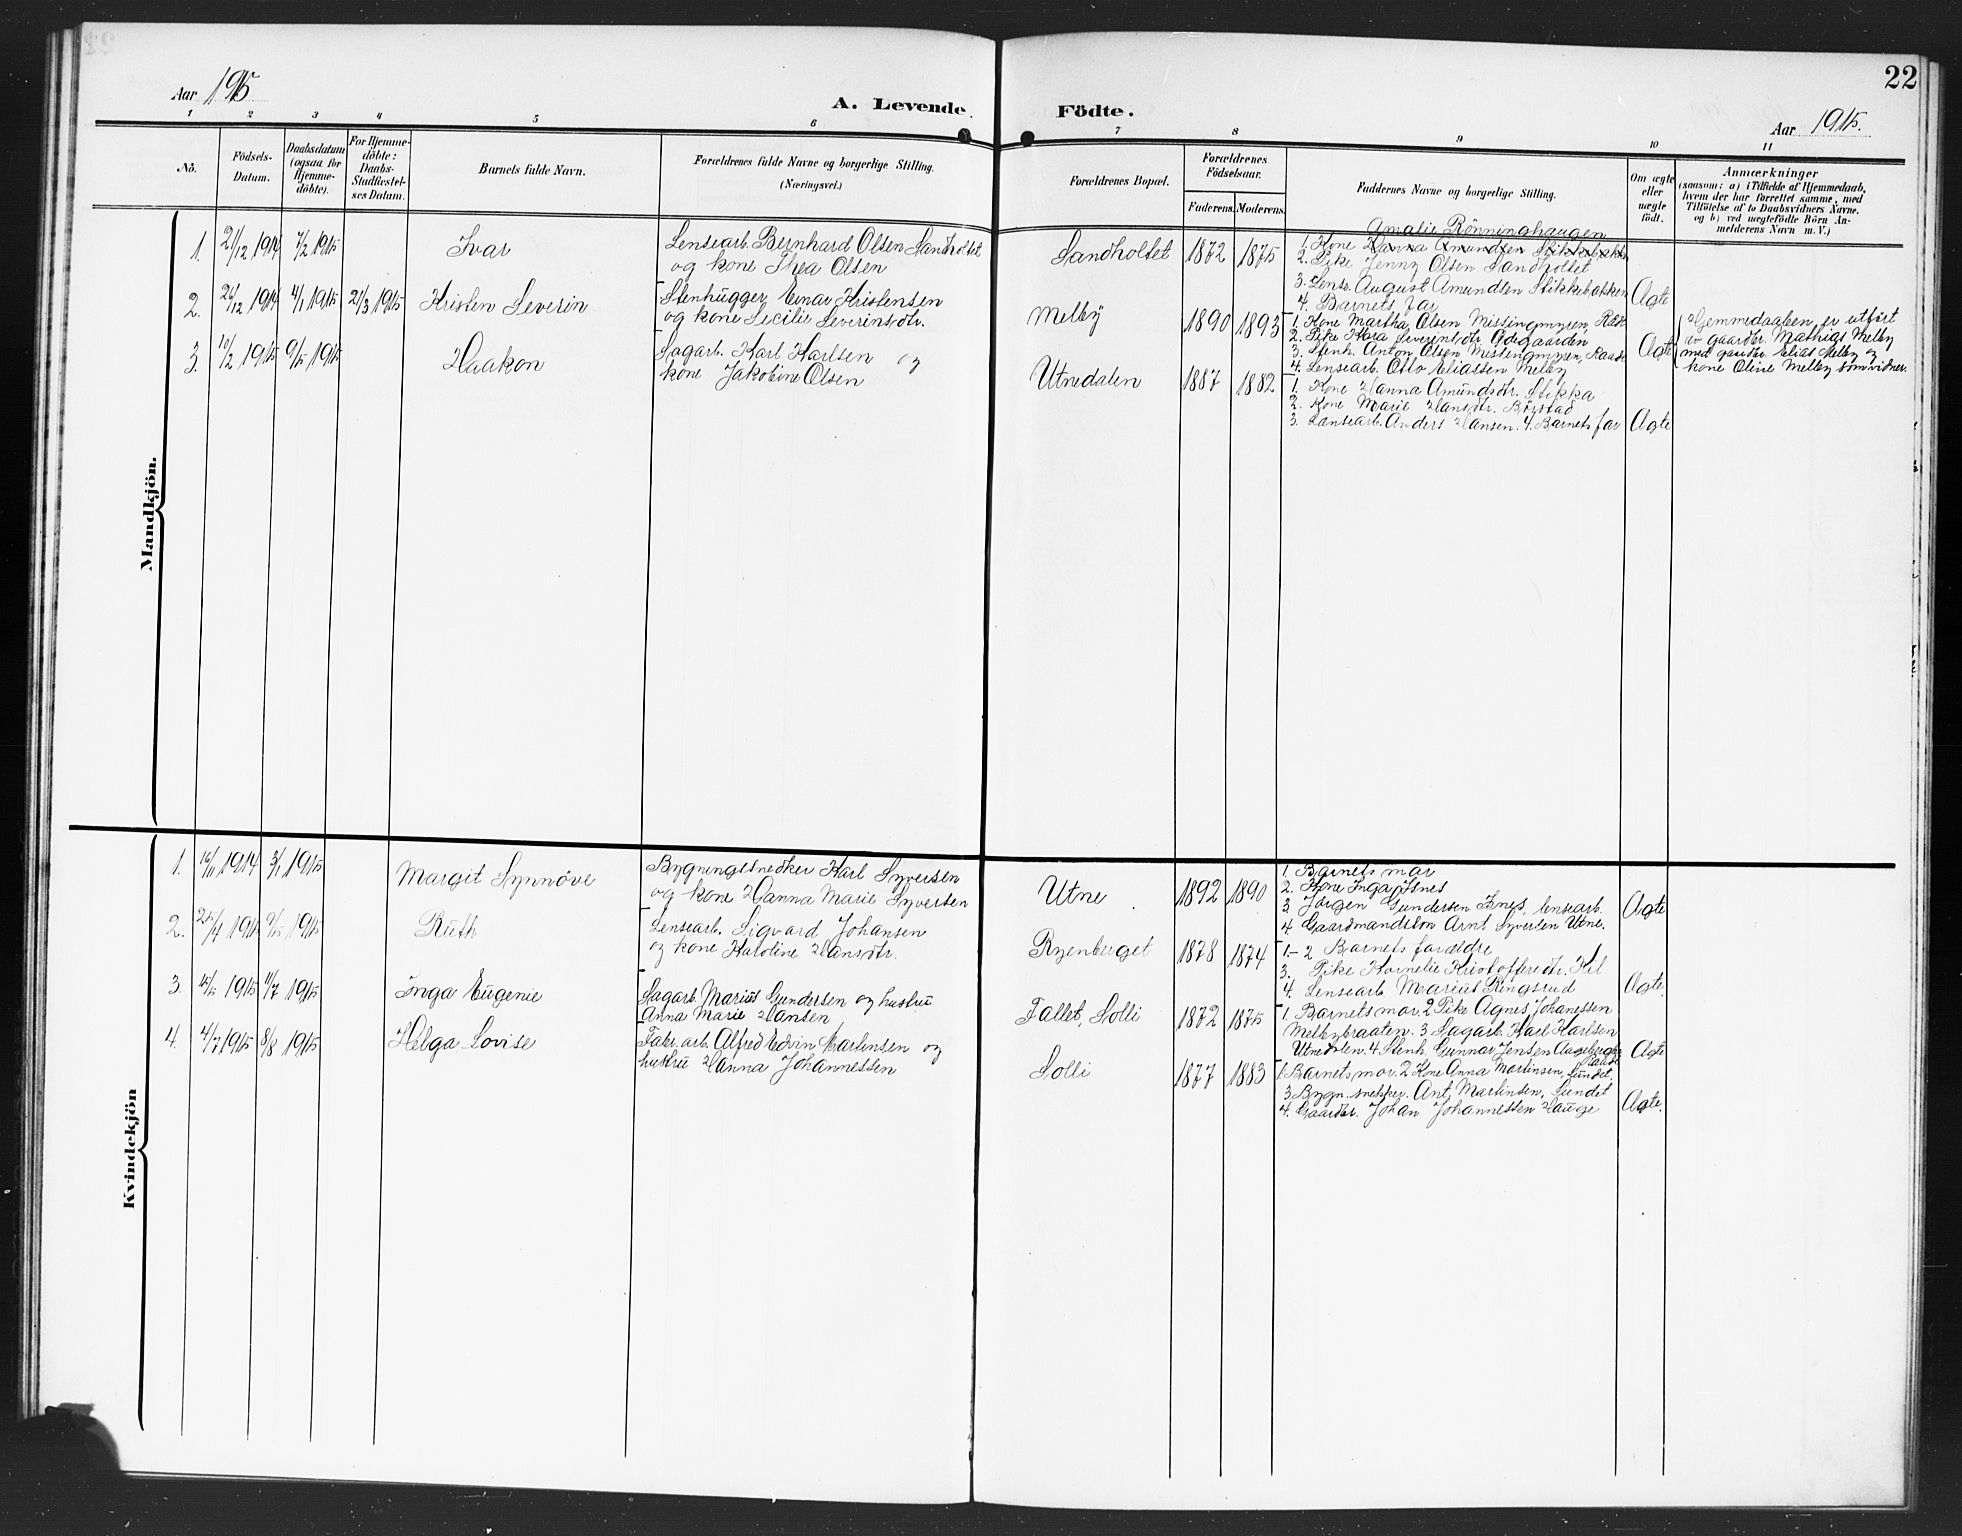 Aar 1915
A. Levende
Födte.
Aar 1915.
22
1 2 3 4 5 6 7 8 9 10 11
No.
Födsels-
Datum.
Daabsdatum
(ogsaa for
Hjemme-
döbte).
For Hjemme-
döbte:
Daabs-
Stadfæstel-
ses Datum.
Barnets fulde Navn.
Forældrenes fulde Navne og borgerlige Stilling.
(Næringsvei.)
Forældrenes Bopæl.
Forældrenes
Födselsaar.
Faderens. Moderens.
Faddernes Navne og borgerlige Stilling.
Om ægte
eller
uægte
födt.
Anmærkninger
(saasom: a) i Tilfælde af Hjemmedaab,
hvem der har forrettet samme, med
Tilföielse af to Daabsvidners Navne.
og b) ved uægtefödte Börn An-
melderens Navn m. V.)
Mandkjön.
1. 21/12 1914 7/2 1915 Ivar
Lensearb. Bernhard Olsen Sandholtet
og kone Thea Olsen
Sandholtet 1872 1875
Amalie Rönninghaugen
1. Kone Hanna Amundsen Stikkebakken
2. Pike Jenny Olsen Sandholtet
3. Lense. August Amundsen Stikkebakken
4. Barnets far
Ægte
2. 26/12 1914 4/1 1915 21/3 1915 Kristen Severin
Stenhugger Einar Kristensen
og kone Cecilie Severinsdtr.
Melby 1890 1893
1. Kone Martha Olsen Missingmyren, Raade
2. Pike Kara Severinsdtr Ödegaarden
3. Stenh. Anton Olsen Missingmyren, Raade
4. Lensearb. Otto Eliassen Melby
Ægte
Hjemmedaaben er utfört
av gaardbr. Mathias Melby
med gaardbr. Elias Melby og
kone Oline Melby som vidner.
3. 10/2 1915 9/5 1915 Haakon
Sagarb. Karl Karlsen og
kone Jakobine Olsen
Utnedalen 1887 1882
1. Kone Hanna Amundsdtr. Stikka
2. Kone Marie Hansdtr. Börstad
3. Lensearb. Anders Hansen. 4. Barnets far
Ægte
Kvindekjön
1. 16/11 1914 3/1 1915 Margit Synnöve
Bygningssnedker Karl Syversen
og kone Hanna Marie Syversen
Utne 1892 1890
1. Barnets mor
2. Kone Inga Isnes
3 Jörgen Gundersen Isnes, lensearb.
4 Gaardmandssön Arnt Syversen Utne.
Ægte
2. 25/4 1915 9/5 1915 Ruth
Lensearb. Sigvard Johansen
og kone Karoline Hansdtr.
Ryenberget 1878 1874
1.-2 Barnets forældre
3. Pike Kornelie Kristoffersdtr. Kil
4. Lensearb Marius Ringsrud
Ægte.
3. 15/5 1915 11/7 1915 Inga Eugenie
Sagarb. Marius Gundersen og hustru
Anna Marie Hansen
Fallet, Solli 1872 1875
1. Barnets mor. 2 Pike Agnes Johanessen
Melbybraaten. 3 Sagarb. Karl Karlsen
Utnedalen. 4 Stenh. Gunnar Jensen
Ægte
4. 4/7 1915 8/8 1915 Helga Lovise
Fabr. arb. Alfred Edvin Martinsen og
hustru Hanna Johannessen
Solli 1877 1883
1. Barnets mor. 2 Kone Anna Martinsen, Sundet.
3 Bygn. snekker. Ant. Martinsen, Sundet
4. Gaardbr. Johan Johannessen Hauge
Ægte.